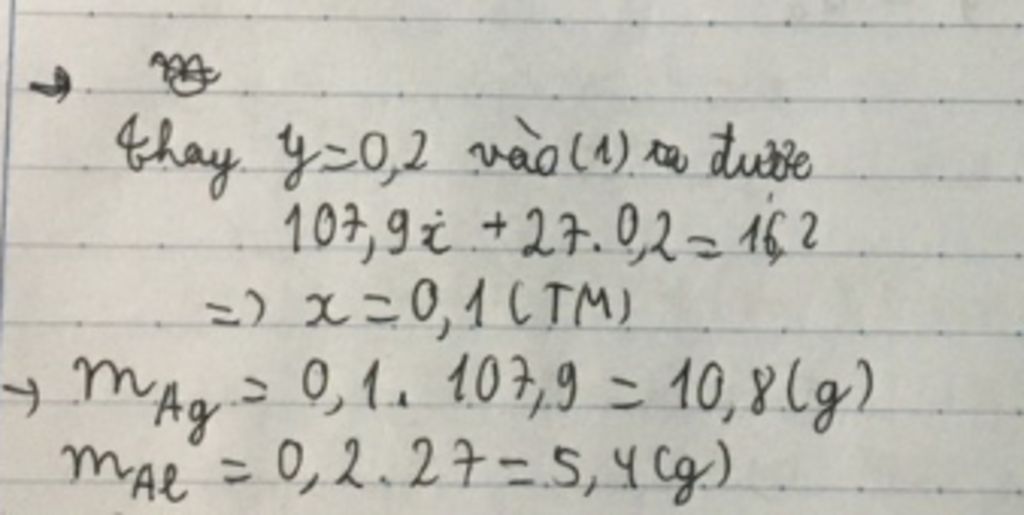 →
thay y=0,2 vào (1) ta được
107,9x + 27.0,2 = 16,2
=) x = 0,1 (TM)
→ mAg = 0,1. 107,9 = 10,8 (g)
mAl = 0,2.27 = 5,4 (g)